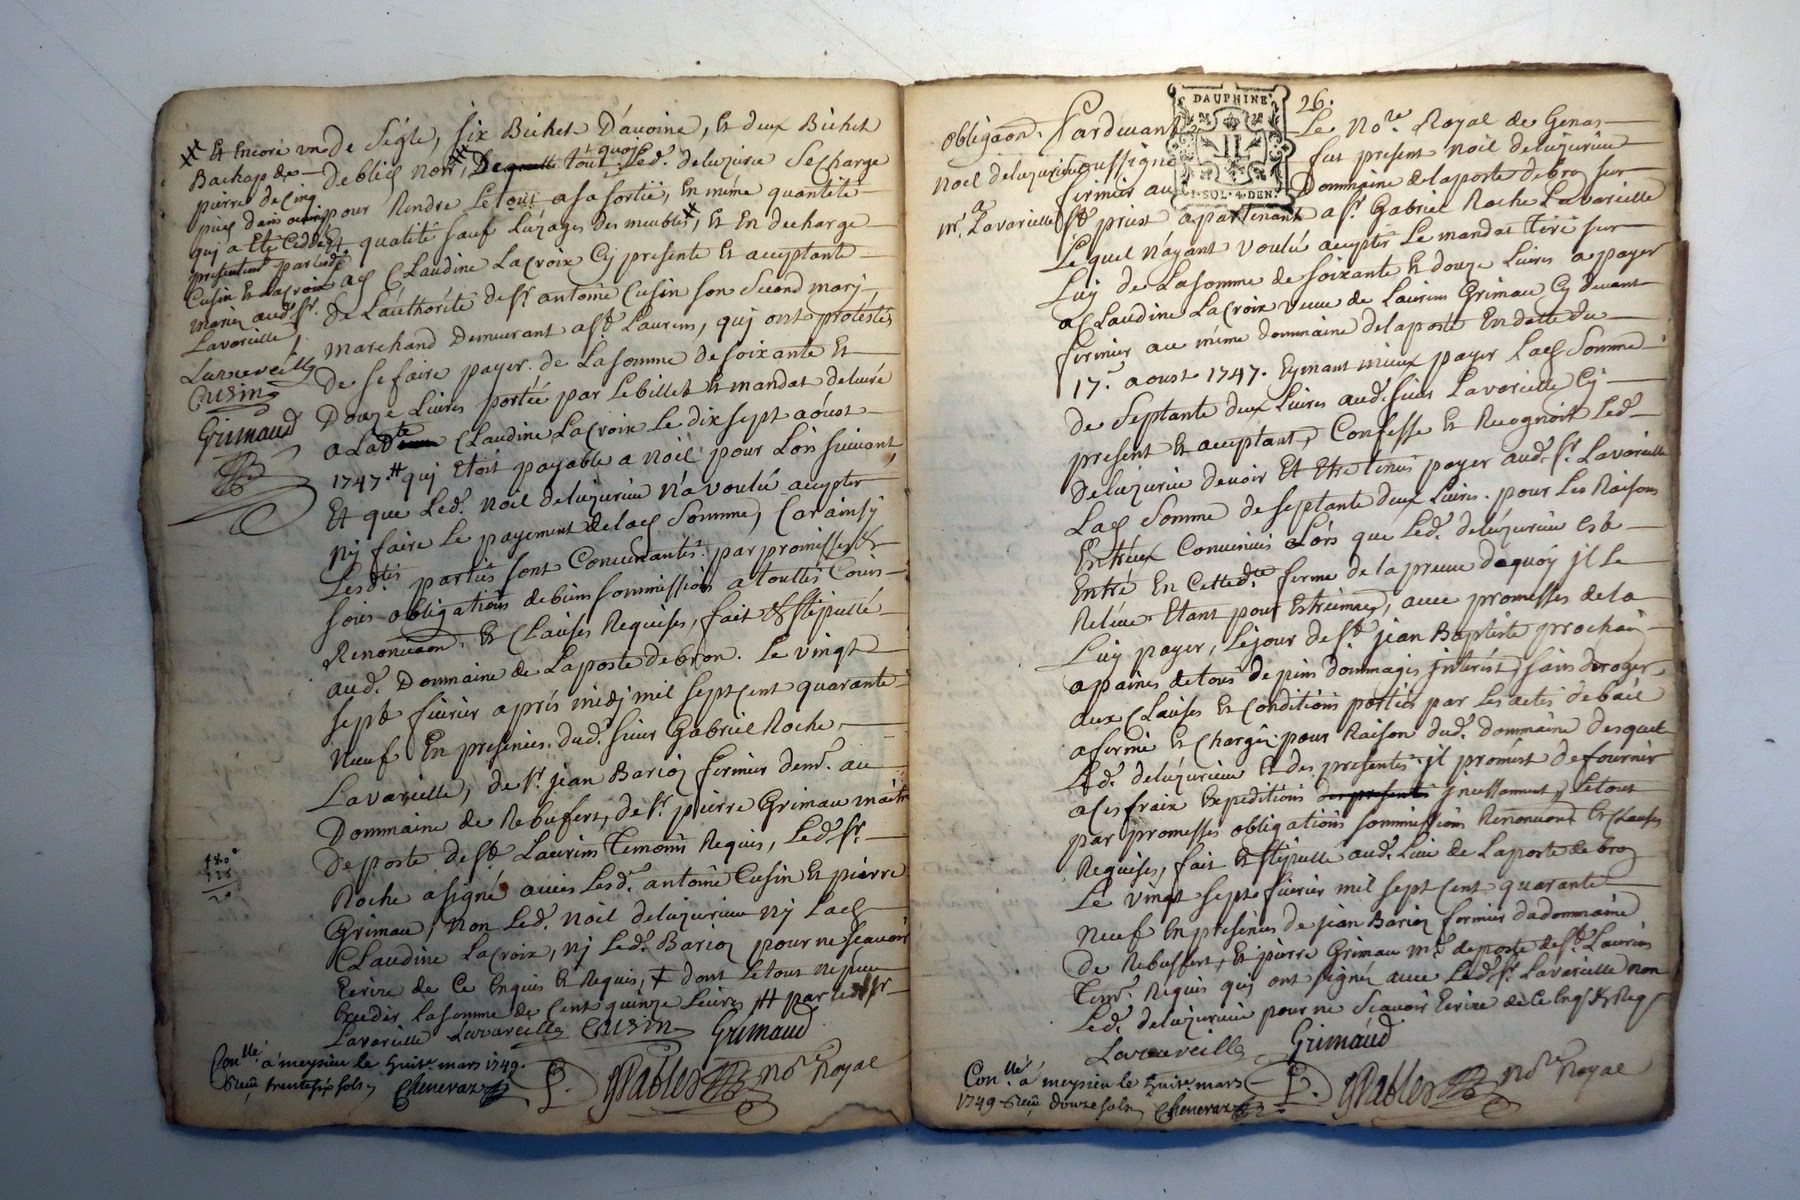 Et Encore un
Bachap de
pierre de Cinq
pieds dans œuvre
qui a Eté Cedde
presentemt par lesd
Cusin Et Lacroix
mariez aud. sr.
Lavareille
Lavareille
Cusin
Grimaud
de Sigle, six Bichet D'avoine, Et deux Bichet
de bled noir, De quoy tout Led. deluzurieu Se Charge
pour Rendre Le tout a sa sortië, En mème quantité
Et qualité sauf L'uzages des meubles, Et En decharge
Claudine Lacroix Cy presente Et acceptante
de L'authorité de sr. antoine Cusin son Second mary
marchand Demeurant a st Laurens, qui ont protéstés
de se faire payer de La somme de soixante Et
Douze Livres portéë par Le billet Et mandat delivré
a Ladte Claudine La Croix Le dix sept aôust
1747 # qui Etoit payable a Noël pour Lors suivant,
Et que Led. Noël deluzurieu N'a voulu accepter
Ny faire Le payement de lad Somme, Car ainsy
Lesdtes parties sont Convenantes par promesses
sous obligations de biens sommissions a touttes Cours
Renonciaon. Et Clauses Requises, fait Et stipullé
aud. Dommaine de Laposte de bron. Le vingt
sept fevrier aprés midy mil sept Cent quarante
Neuf En presences. dud. sieur Gabriel Roche
Lavareille, de sr. jean Barioz fermier demt. au
Dommaine de Rebufert, de sr. pierre Grimau maitre
De poste de st Laurens temoins Requis, Led. sr.
Roche a signé avec Lesd. antoine Cusin Et pierre
Grimau, Non Led. Noël deluzurieu Ny Lad
Claudine Lacroix, Ny Led. Barioz pour ne sçavoir
Ecrire de Ce Enquis Et Requis, dont Le tout ne peu
Exceder La somme de Cent quinze Livres # par led sr
Lavareille Lavareille Cusin Grimaud
Conllé a meysieu le huite. mars 1749.
Reçu trente six sols Cheneraz P. GPables No.re Royal
26.
Obligaon.
Noel deluzurieu
mr. Lavareille
Pardevant Le No.re Royal de Genas
soussigné fut present Noël deluzurieu
fermier au Dommaine de laposte de bron sur
st priest apartenant a sr. Gabriel Roche Lavareille
Le quel N'ayant voulu accepter Le mandat tiré sur
Luy de La somme de soixante Et douze Livres a payer
a Claudine La Croix veuve de Laurens Grimau Cy devant
fermier au mème dommaine de laposte En datte du
17e. aoust 1747. Eymant mieux payer Lad Somme
de septante deux Livres aud. sieur Lavareille Cy
present Et acceptant, Confesse Et Recognoit Led.
deluzurieu devoir Et Etre tenu payer aud. sr. Lavareille
Lad Somme de septante deux Livres. pour Les Raisons
Entréux Convenues Lors que Led. deluzurieu est
Entré En Cettedte ferme de la preuve dequoy il Le
Reléve Etant pour Estreinnes, avec promesses de la
Luy payer, Le jour de st. jean Baptiste prochain
a paines de tous depens dommages interest, sans deroger
aux Clauses Et Conditions portées par Les actes de bail
a ferme Et Chargë pour Raison dud. dommaine desquels
Led. deluzurieu Et des presentes il promest de fournir
a ses fraix Expeditions des presentes incessamment, Le tout
par promesses obligations sommissions Renonciaon Et Clauses
Requises, fait Et stipullé aud. Lieu de Laposte de bron
Le vingt sept fevrier mil sept Cent quarante
Neuf En presences de jean Barioz fermier dudommaine
de Rebuffert, Et pierre Grimau me. de poste de st. Laurens
temt. Requis qui ont signés avec Led. sr. Lavareille non
Led. deluzurieu pour ne Scavoir Ecrire de Ce Enq Et Req
Lavareille Grimaud
Conllé a meysieu le huite. mars
1749 Reçu douze sols Cheneraz P. GPables No.re Royal
DAUPHINE
II
1·SOL·4·DEN.